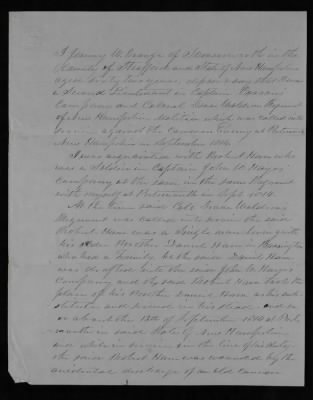 I Jeremy W. Orange of Somersworth in the
County of Strafford and State of New Hampshire
aged sixty two years, depose & say that I was
a Second Lieutenant in Captain
Company and Colonel Isaac Waldron Regiment
of New Hampshire Militia which was called into
service against the common Enemy at Portsmouth
New Hampshire in September 1814.
I was acquainted with Robert Ham who
was a Soldier in Captain John W. Hayes'
Company at the same in the same Regiment
with myself at Portsmouth in Sept. 1814.
At the time said Col. Isaac Waldron's
Regiment was called into service the said
Robert Ham was a single man living with
his older Brother Daniel Ham in Barrington
who had a family & the said Daniel Ham
was drafted into the said John W. Hayes
Company and the said Robert Ham took the
place of his Brother Daniel Ham as his sub-
stitute and served in his stead and on
or about the 13th of September 1814 at Ports
mouth in said State of New Hampshire
and while in service in the line of his duty
the said Robert Ham was wounded by the
accidental discharge of an old Cannon